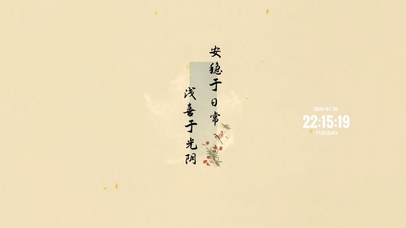 安稳于日常
浅喜于光阴
22:15:19
TUESDAY